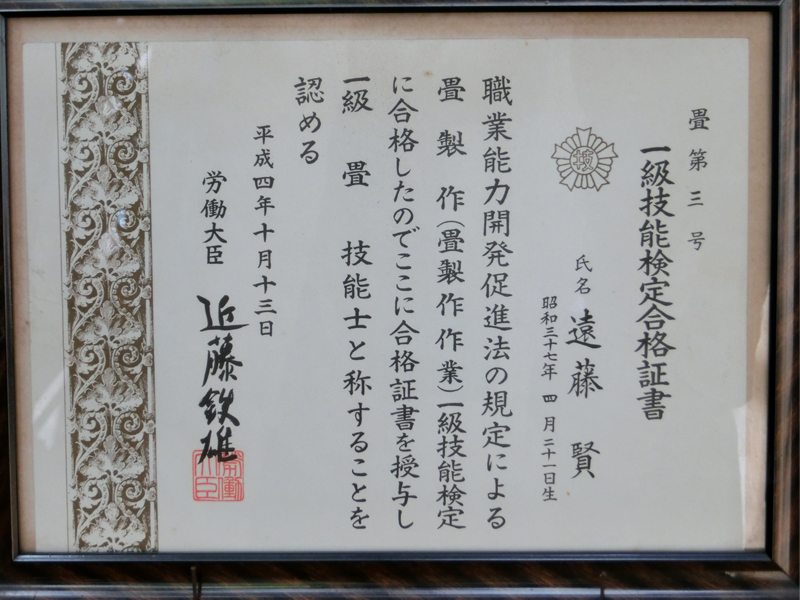 畳第三号
一級技能検定合格証書
技
氏名 遠藤 賢
昭和三十七年 四月二十一日生
職業能力開発促進法の規定による
畳製作(畳製作作業)一級技能検定
に合格したのでここに合格証書を授与し
一級 畳 技能士と称することを
認める
平成四年十月十三日
労働大臣 近藤鉄雄
労働大臣